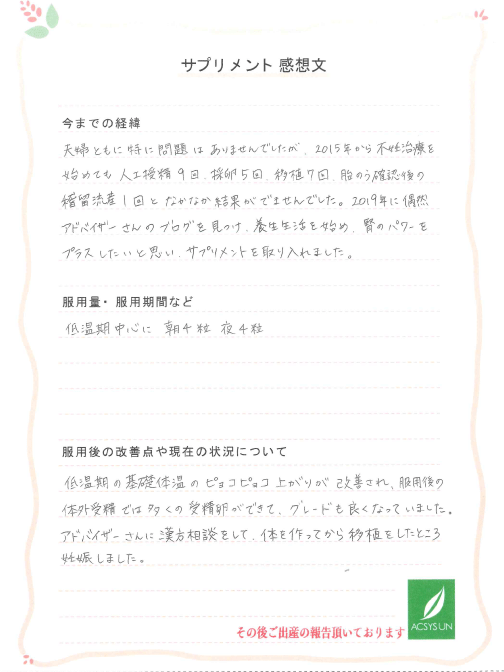 サプリメント 感想文
今までの経緯
夫婦ともに特に問題はありませんでしたが、2015年から不妊治療を
始めても人工授精9回、採卵5回、移植7回、胎のう確認後の
稽留流産1回となかなか結果がでませんでした。2019年に偶然
アドバイザーさんのブログを見つけ、養生生活を始め、腎のパワーを
プラスしたいと思い、サプリメントを取り入れました。
服用量・服用期間など
低温期中心に 朝4粒 夜4粒
服用後の改善点や現在の状況について
低温期の基礎体温のピョコピョコ上がりが改善され、服用後の
体外受精では多くの受精卵ができて、グレードも良くなっていました。
アドバイザーさんに漢方相談をして、体を作ってから移植をしたところ
妊娠しました。
その後ご出産の報告頂いております
ACSYSUN